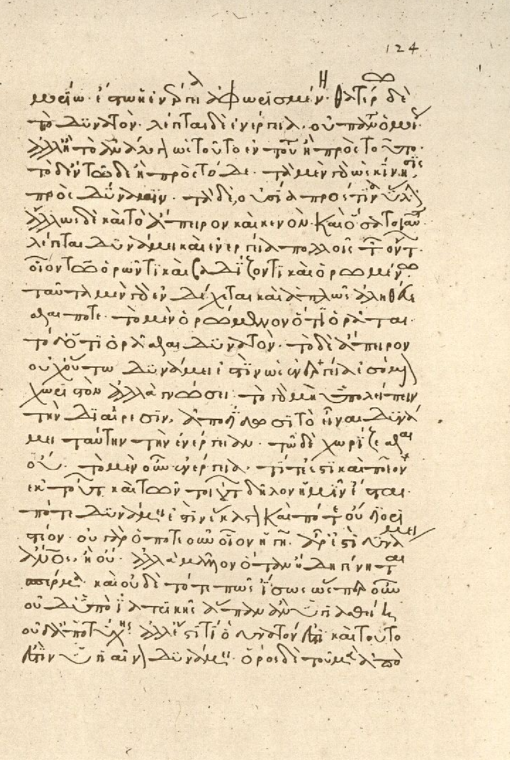 124
μορίω· ἔστω ἡ ἐνέργεια ἀφωρισμένη· θατέρω δὲ
τὸ δυνατόν· λέγεται δὲ ἐνεργεία· οὐ πάντα ὁμοίως·
ἀλλ' ἢ τὸ ἀνάλογον ὡς τοῦτο ἐν τούτω ἢ πρὸς τοῦτο·
τὸ δ' ἐν τῶδε ἢ πρὸς τόδε· τὰ μὲν γὰρ ὡς κίνησις
πρὸς δύναμιν· τὰ δ' ὡς οὐσία πρός τινα ὕλην·
ἄλλως δὲ καὶ τὸ ἄπειρον καὶ κενόν· καὶ ὅσα τοιαῦτα
λέγεται δυνάμει καὶ ἐνεργεία πολλοῖς τῶν ὄντων·
οἷον τῶ ὁρῶντι καὶ βαδίζοντι καὶ ὁρωμένω·
ταῦτα μὲν γὰρ ἐνδέχεται καὶ ἁπλῶς ἀληθεύε
σθαι ποτε· τὸ μὲν ὁρώμενον ὅτι ὁρᾶται·
τὸ δ' ὅτι ὁρᾶσθαι δυνατόν· τὸ δὲ ἄπειρον
οὐχ οὕτω δυνάμει ἐστὶν ὡς ἐνεργεία ἐσόμενον
χωριστὸν ἀλλὰ γνώσει· τὸ γὰρ μὴ ὑπολείπειν
τὴν διαίρεσιν, ἀποδίδωσι τὸ εἶναι δυνά
μει ταύτην τὴν ἐνέργειαν· τὸ δὲ χωρίζεσθαι
οὔ· τὸ μὲν οὖν ἐνεργεία· τί τέ ἐστι καὶ ποῖον
ἐκ τούτων καὶ τῶν τοιούτων δῆλον ἡμῖν ἔστω·
πότε δὲ δυνάμει ἐστὶν ἕκαστον καὶ πότε οὔ διορι
στέον· οὐ γὰρ ὁποτεοῦν οἷον ἡ γῆ· ἆρ' ἐστὶ δυνάμει
ἄνθρωπος, ἢ οὔ· ἀλλὰ μᾶλλον ὅταν ἤδη γένηται
σπέρμα· καὶ οὐδὲ τότε πως ἴσως ὥσπερ οὖν
οὐδ' ὑπὸ ἰατρικῆς ἅπαν ἂν ὑγιασθείη
οὐδ' ἀπὸ τύχης· ἀλλ' ἔστι τι ὃ δυνατόν ἐστι· καὶ τοῦτο
ἐστὶν ὑγιαῖνον δυνάμει· ὅρος δὲ τοῦ μὲν ἀπὸ